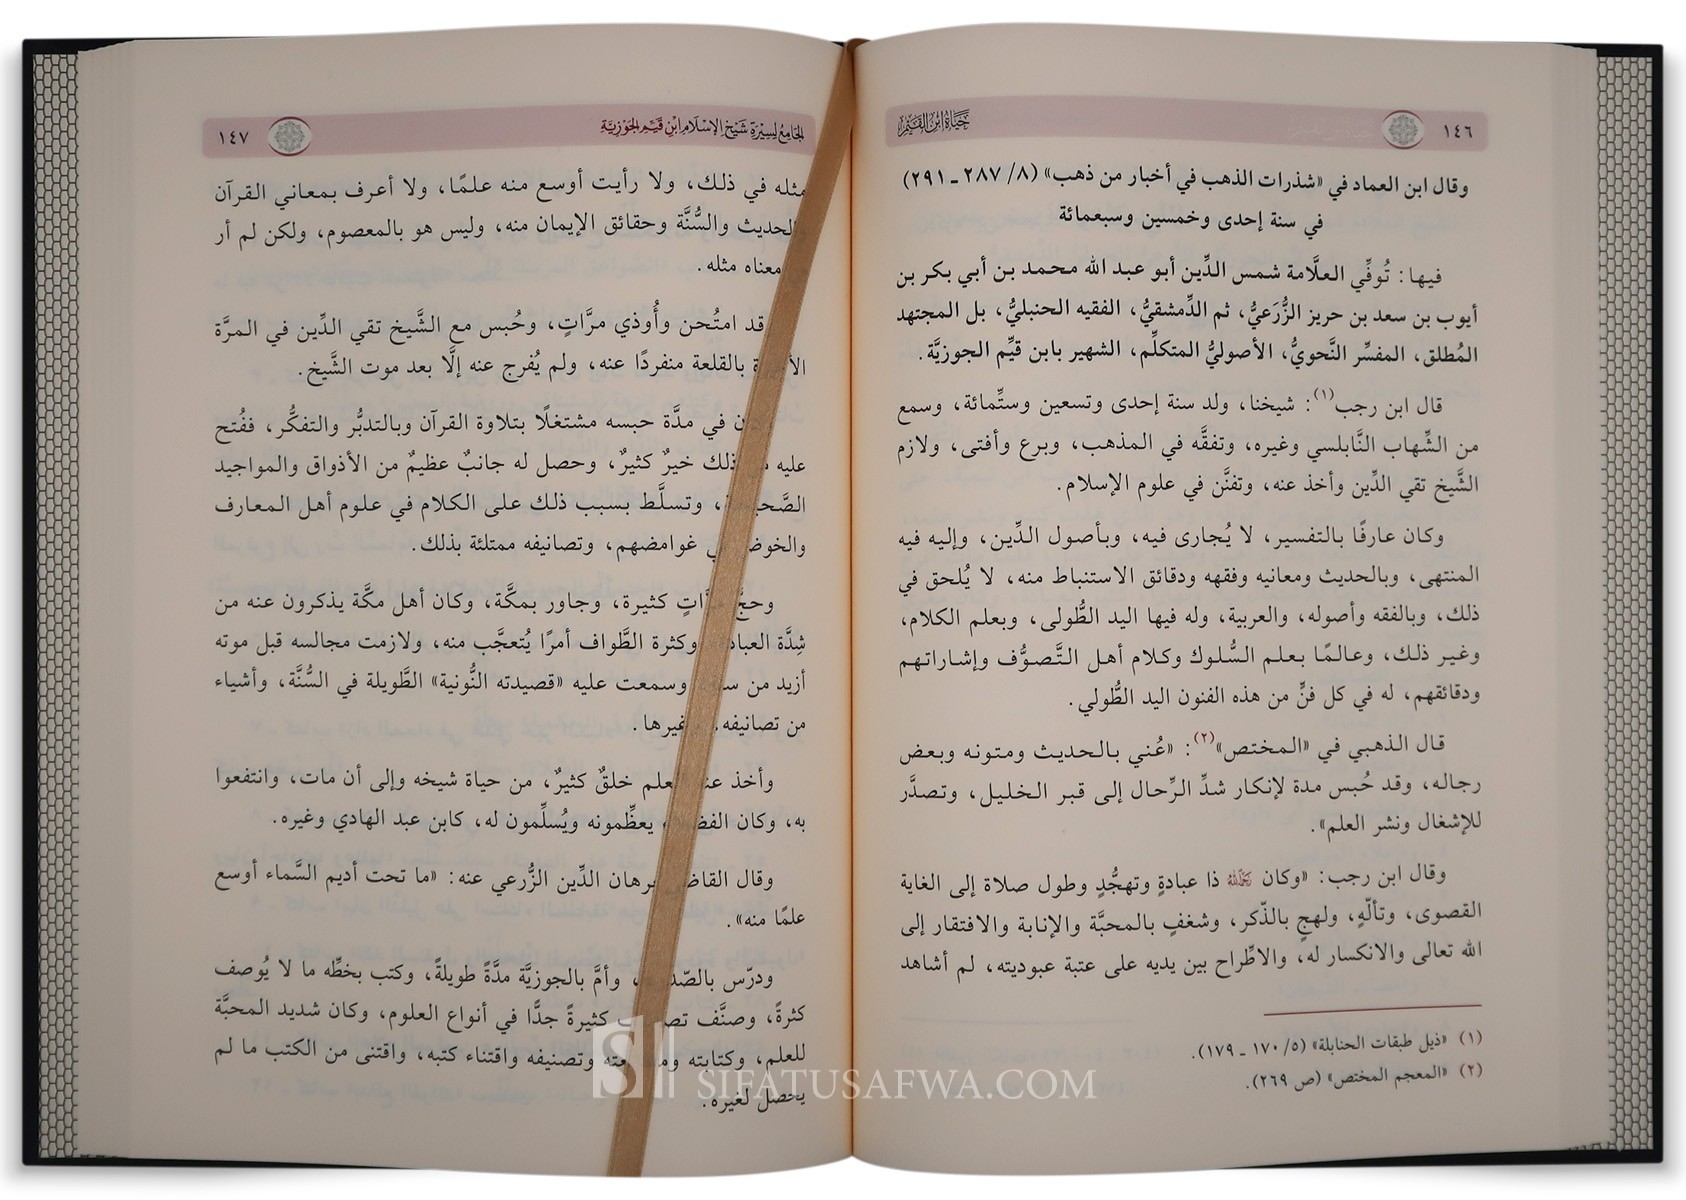 حياة ابن القيم
١٤٦
وقال ابن العماد في «شذرات الذهب في أخبار من ذهب» (٨/ ٢٨٧ ـ ٢٩١)
في سنة إحدى وخمسين وسبعمائة
فيها: تُوفِّي العلَّامة شمس الدِّين أبو عبد الله محمد بن أبي بكر بن
أيوب بن سعد بن حريز الزُّرَعيُّ، ثم الدِّمشقيُّ، الفقيه الحنبليُّ، بل المجتهد
المُطلق، المفسِّر النَّحويُّ، الأصوليُّ المتكلِّم، الشهير بابن قيِّم الجوزيَّة.
قال ابن رجب(١): شيخنا، ولد سنة إحدى وتسعين وستِّمائة، وسمع
من الشِّهاب النَّابلسي وغيره، وتفقَّه في المذهب، وبرع وأفتى، ولازم
الشَّيخ تقي الدِّين وأخذ عنه، وتفنَّن في علوم الإسلام.
وكان عارفًا بالتفسير، لا يُجارى فيه، وبأصول الدِّين، وإليه فيه
المنتهى، وبالحديث ومعانيه وفقهه ودقائق الاستنباط منه، لا يُلحق في
ذلك، وبالفقه وأصوله، والعربية، وله فيها اليد الطُّولى، وبعلم الكلام،
وغير ذلك، وعالمًا بعلم السُّلوك وكلام أهل التَّصوُّف وإشاراتهم
ودقائقهم، له في كل فنٍّ من هذه الفنون اليد الطُّولي.
قال الذهبي في «المختص»(٢): «عُني بالحديث ومتونه وبعض
رجاله، وقد حُبس مدة لإنكار شدِّ الرِّحال إلى قبر الخليل، وتصدَّر
للإشغال ونشر العلم».
وقال ابن رجب: «وكان رحمه الله ذا عبادةٍ وتهجُّدٍ وطول صلاة إلى الغاية
القصوى، وتألّهٍ، ولهجٍ بالذّكر، وشغفٍ بالمحبَّة والإنابة والافتقار إلى
الله تعالى والانكسار له، والاطِّراح بين يديه على عتبة عبوديته، لم أشاهد
(١) «ذيل طبقات الحنابلة» (٥/ ١٧٠ ـ ١٧٩).
(٢) «المعجم المختص» (ص ٢٦٩).
الجامع لسيرة شيخ الإسلام ابن قيم الجوزية
١٤٧
مثله في ذلك، ولا رأيت أوسع منه علمًا، ولا أعرف بمعاني القرآن
والحديث والسُّنَّة وحقائق الإيمان منه، وليس هو بالمعصوم، ولكن لم أر
معناه مثله.
قد امتُحن وأُوذي مرَّاتٍ، وحُبس مع الشَّيخ تقي الدِّين في المرَّة
بالقلعة منفردًا عنه، ولم يُفرج عنه إلَّا بعد موت الشَّيخ.
في مدَّة حبسه مشتغلًا بتلاوة القرآن وبالتدبُّر والتفكُّر، ففُتح
عليه ذلك خيرٌ كثيرٌ، وحصل له جانبٌ عظيمٌ من الأذواق والمواجيد
وتسلَّط بسبب ذلك على الكلام في علوم أهل المعارف
والخوض غوامضهم، وتصانيفه ممتلئة بذلك.
وحجَّ مرَّاتٍ كثيرة، وجاور بمكَّة، وكان أهل مكَّة يذكرون عنه من
شِدَّة العبادة وكثرة الطَّواف أمرًا يُتعجَّب منه، ولازمت مجالسه قبل موته
أزيد من وسمعت عليه «قصيدته النُّونية» الطَّويلة في السُّنَّة، وأشياء
من تصانيفه، وغيرها.
وأخذ عنه العلم خلقٌ كثيرٌ، من حياة شيخه وإلى أن مات، وانتفعوا
به، وكان يعظِّمونه ويُسلِّمون له، كابن عبد الهادي وغيره.
وقال القاضي برهان الدِّين الزُّرعي عنه: «ما تحت أديم السَّماء أوسع
علمًا منه».
ودرّس وأمَّ بالجوزيَّة مدَّةً طويلةً، وكتب بخطِّه ما لا يُوصف
كثرةً، وصنَّف كثيرةً جدًّا في أنواع العلوم، وكان شديد المحبَّة
للعلم، وكتابته وتصنيفه واقتناء كتبه، واقتنى من الكتب ما لم
يحصل لغيره.
SIFATUSAFWA.COM